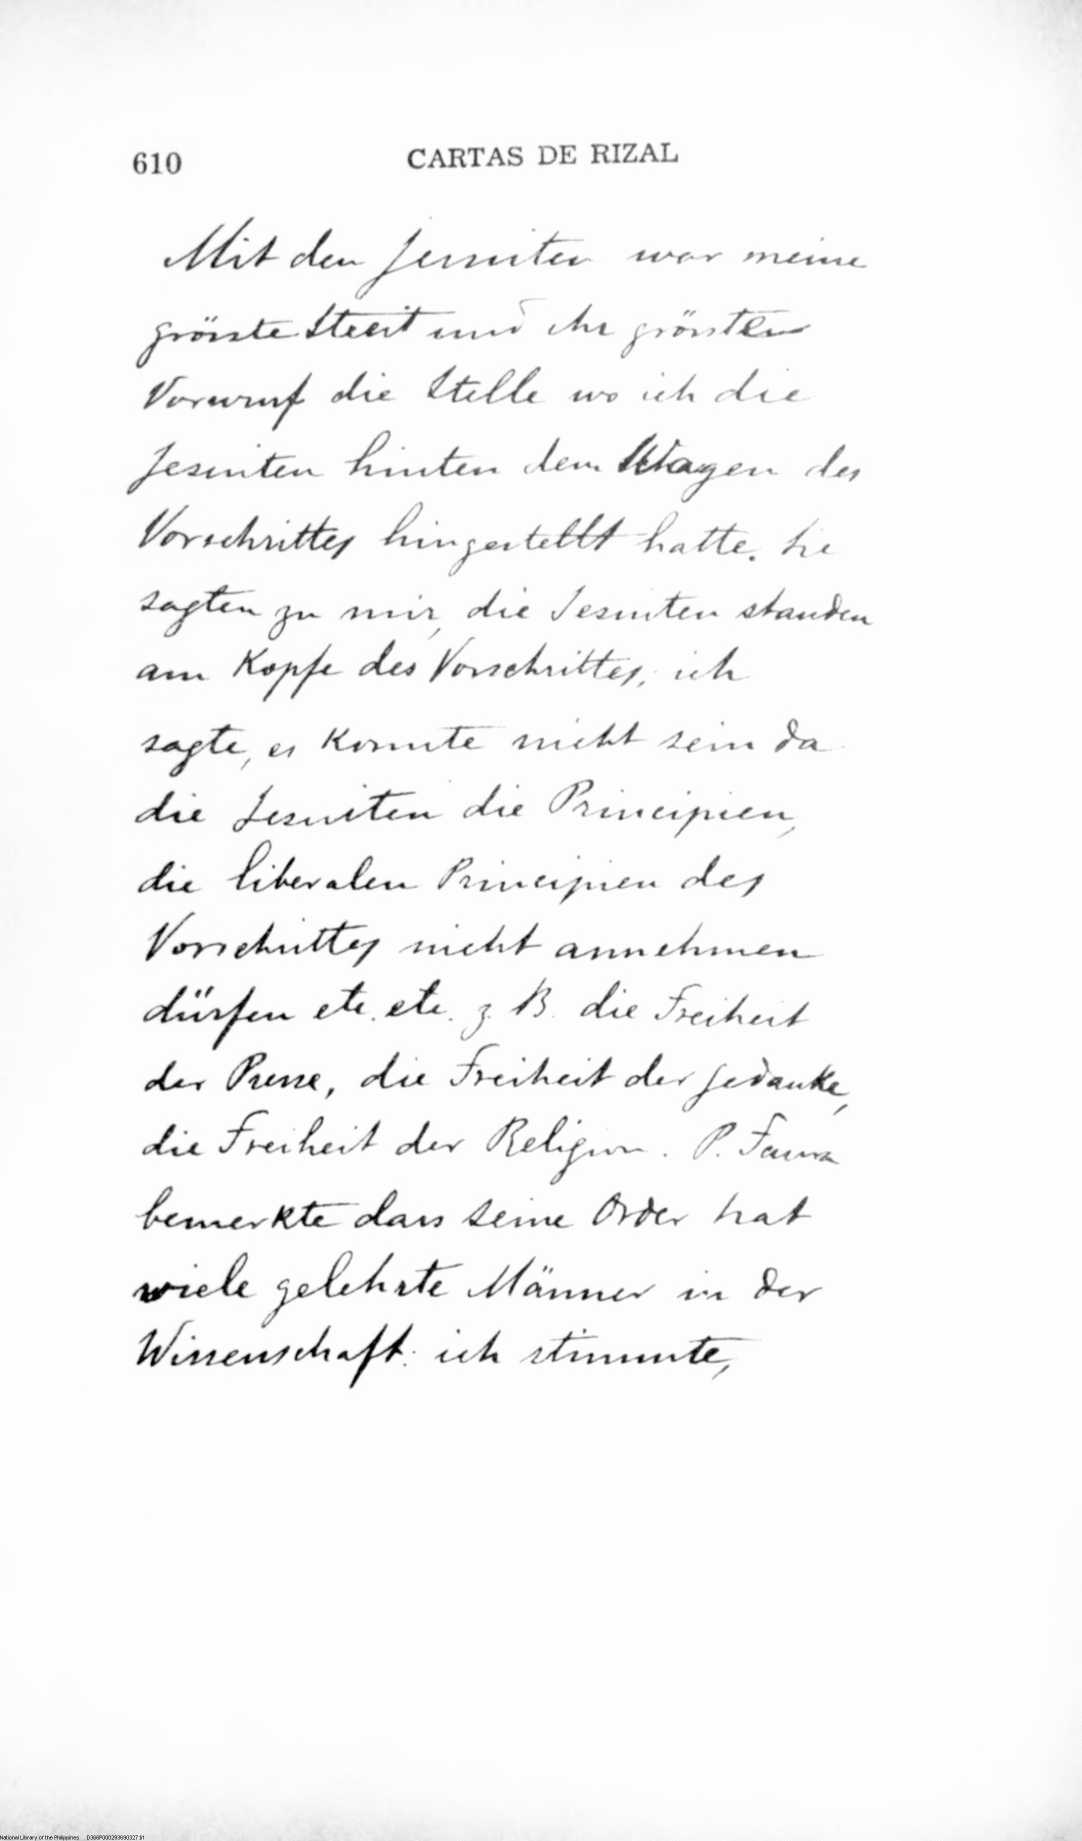 610 CARTAS DE RIZAL
Mit den Jesuiten war meine
grösste Streit und ihr grössten
Vorwurf die Stelle wo ich die
Jesuiten hinten dem Wagen des
Vorschrittes hingestellt hatte. Sie
sagten zu mir, die Jesuiten standen
am Kopfe des Vorschrittes; ich
sagte, es konnte nicht sein da
die Jesuiten die Principien,
die liberalen Principien des
Vorschrittes nicht annehmen
dürfen etc. etc. z. B. die Freiheit
der Presse, die Freiheit der Gedanke,
die Freiheit der Religion. P. Faura
bemerkte dass seine Order hat
viele gelehrte Männer in der
Wissenschaft: ich stimmte,
National Library of the Philippines